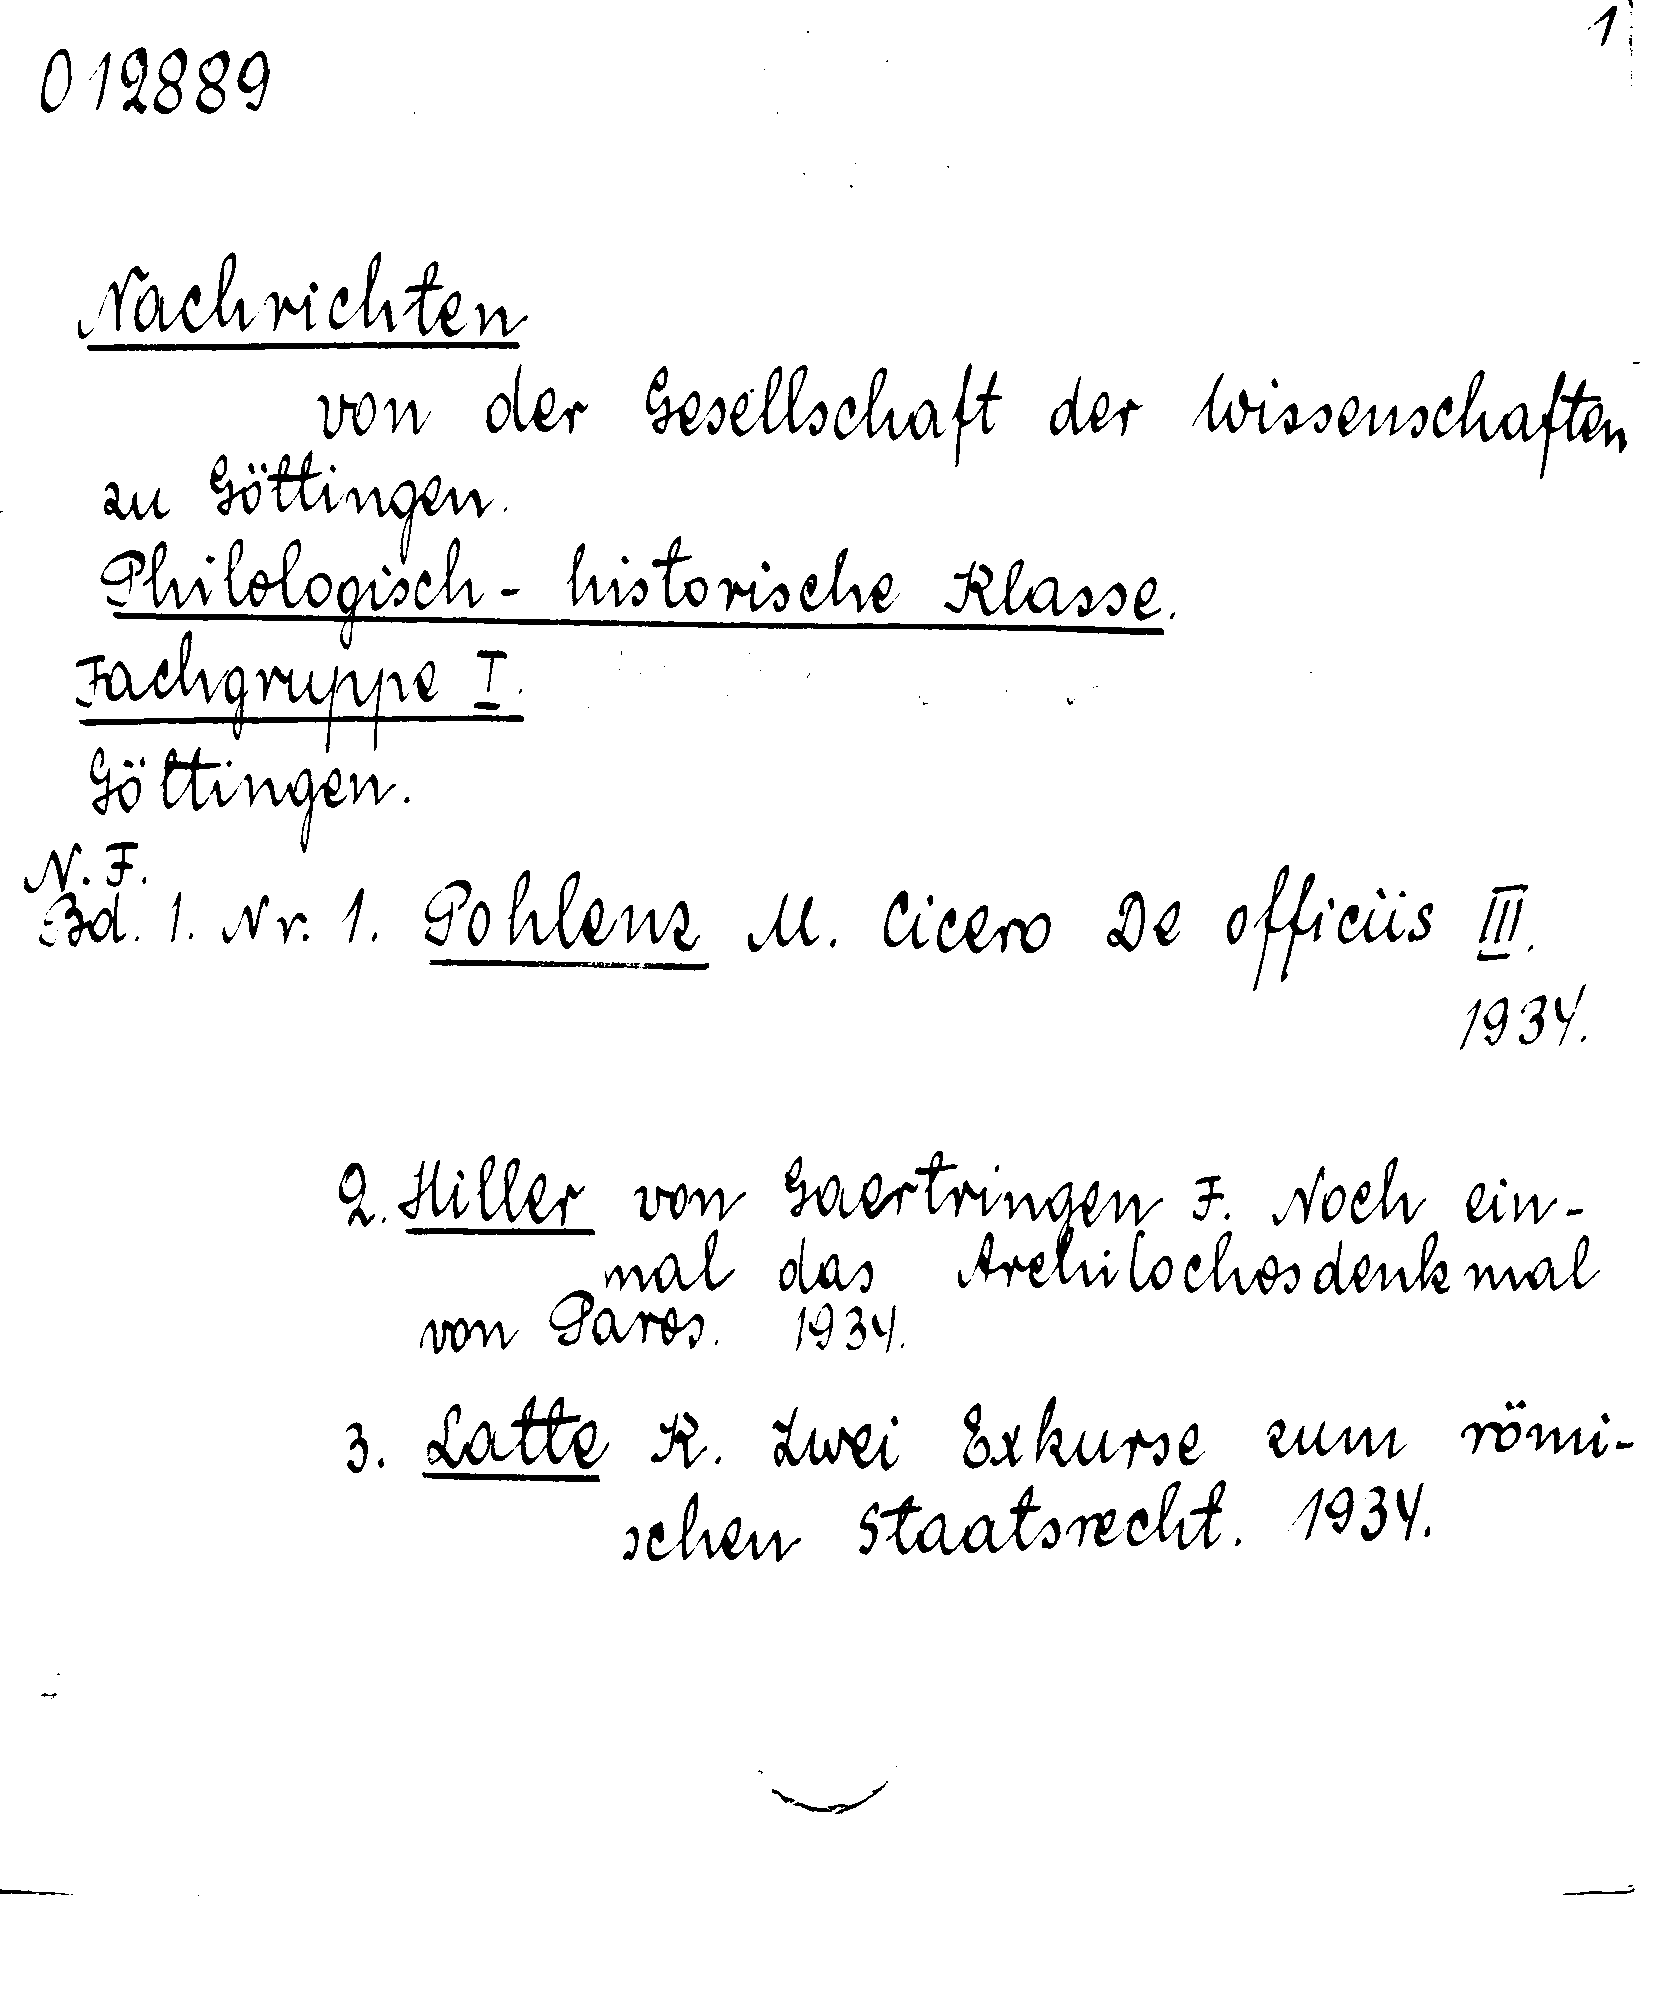 1
012889
Nachrichten
von der Gesellschaft der Wissenschaften
zu Göttingen.
Philologisch - historische Klasse.
Fachgruppe I.
Göttingen.
N. F.
Bd. 1. Nr. 1. Pohlenz M. Cicero De officiis III.
1934.
2. Hiller von Gaertringen F. Noch ein-
mal das Archilochosdenkmal
von Paros. 1934.
3. Latte K. Zwei Exkurse zum römi-
schen Staatsrecht. 1934.